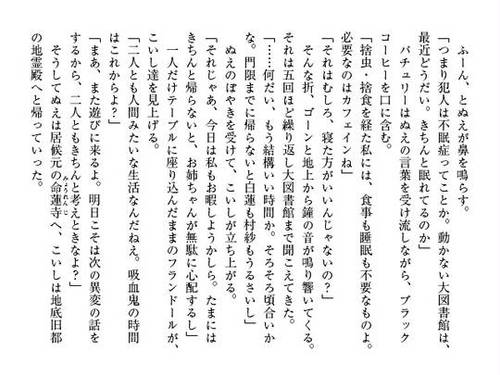 ふーん、とぬえが鼻を鳴らす。
「つまり犯人は不眠症ってことか。動かない大図書館は、
最近どうだい。きちんと眠れてるのか」
パチュリーはぬえの言葉を受け流しながら、ブラック
コーヒーを口に含む。
「捨虫・捨食を経た私には、食事も睡眠も不要なものよ。
必要なのはカフェインね」
「それはむしろ、寝た方がいいんじゃないの？」
そんな折、ゴーンと地上から鐘の音が鳴り響いてくる。
それは五回ほど繰り返し大図書館まで聞こえてきた。
「……何だい、もう結構いい時間か。そろそろ頃合いか
な。門限までに帰らないと白蓮も村紗もうるさいし」
ぬえのぼやきを受けて、こいしが立ち上がる。
「それじゃあ、今日は私もお暇しようかしら。たまには
きちんと帰らないと、お姉ちゃんが無駄に心配するし」
一人だけテーブルに座り込んだままのフランドールが、
こいし達を見上げる。
「二人とも人間みたいな生活なんだねぇ。吸血鬼の時間
はこれからよ？」
「まあ、また遊びに来るよ。明日こそは次の異変の話を
するから、二人ともきちんと考えときなよ？」
そうしてぬえは居候元の命蓮寺へ、こいしは地底旧都
の地霊殿へと帰っていった。
みょうれんじ